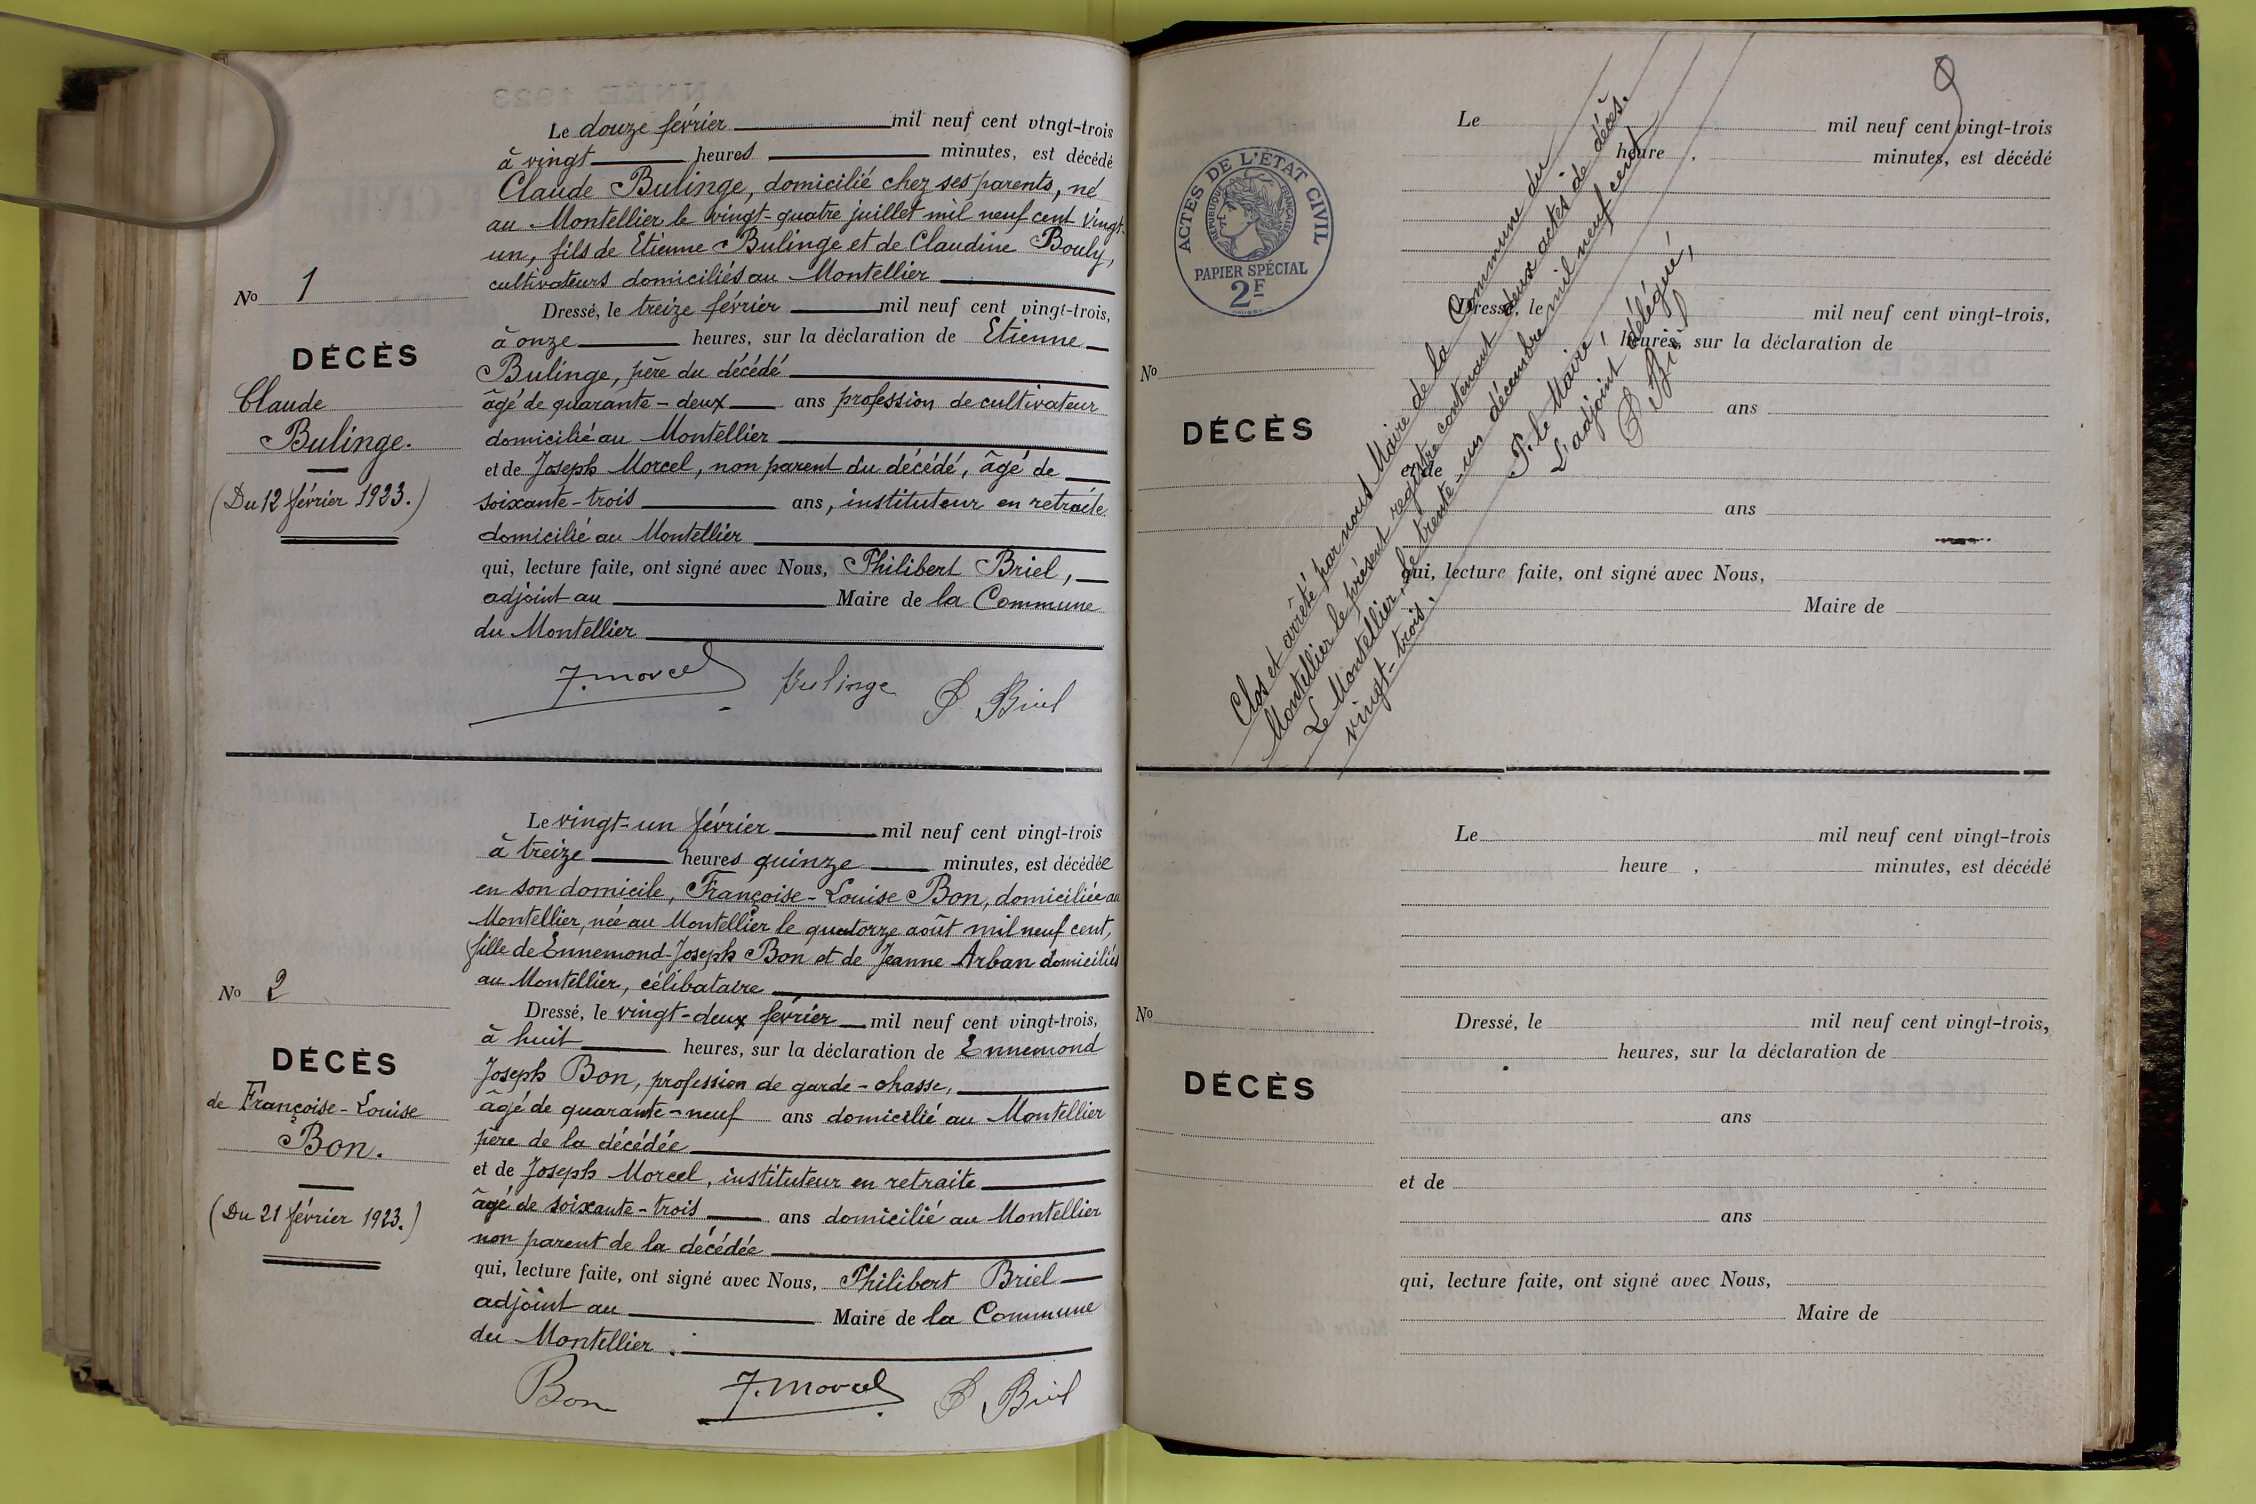 Le douze février mil neuf cent vingt-trois
à vingt heures minutes, est décédé
Claude Bulinge, domicilié chez ses parents, né
au Montellier le vingt-quatre juillet mil neuf cent vingt-
un, fils de Etienne Bulinge et de Claudine Bouly,
cultivateurs domiciliés au Montellier
No 1
DÉCÈS
Claude
Bulinge.
(Du 12 février 1923.)
Dressé, le treize février mil neuf cent vingt-trois,
à onze heures, sur la déclaration de Etienne
Bulinge, père du décédé
âgé de quarante-deux ans profession de cultivateur
domicilié au Montellier
et de Joseph Morcel, non parent du décédé, âgé de
soixante-trois ans, instituteur en retraite
domicilié au Montellier
qui, lecture faite, ont signé avec Nous, Philibert Briel,
adjoint au Maire de la Commune
du Montellier
J. Morcel Bulinge P Briel
Le vingt-un février mil neuf cent vingt-trois
à treize heures quinze minutes, est décédée
en son domicile, Françoise-Louise Bon, domiciliée au
Montellier, née au Montellier le quatorze août mil neuf cent,
fille de Ennemond-Joseph Bon et de Jeanne Arban domiciliés
au Montellier, célibataire
No 2
DÉCÈS
de Françoise-Louise
Bon.
(Du 21 février 1923.)
Dressé, le vingt-deux février mil neuf cent vingt-trois,
à huit heures, sur la déclaration de Ennemond
Joseph Bon, profession de garde-chasse,
âgé de quarante-neuf ans domicilié au Montellier
père de la décédée
et de Joseph Morcel, instituteur en retraite
âgé de soixante-trois ans domicilié au Montellier
non parent de la décédée
qui, lecture faite, ont signé avec Nous, Philibert Briel
adjoint au Maire de la Commune
du Montellier.
Bon J. Morcel P Briel
9
ACTES DE L'ETAT CIVIL
RÉPUBLIQUE FRANÇAISE
PAPIER SPÉCIAL
2F
Le mil neuf cent vingt-trois
heure , minutes, est décédé
Dressé, le mil neuf cent vingt-trois,
heures, sur la déclaration de
No
DÉCÈS
ans
et de
ans
qui, lecture faite, ont signé avec Nous,
Maire de
Clos et arrêté par nous Maire de la Commune du
Montellier le présent registre contenant deux actes de décès.
Le Montellier, le trente-un décembre mil neuf cent
vingt-trois.
P. le Maire,
L'adjoint délégué,
P Briel
Le mil neuf cent vingt-trois
heure , minutes, est décédé
No
DÉCÈS
Dressé, le mil neuf cent vingt-trois,
heures, sur la déclaration de
ans
et de
ans
qui, lecture faite, ont signé avec Nous,
Maire de